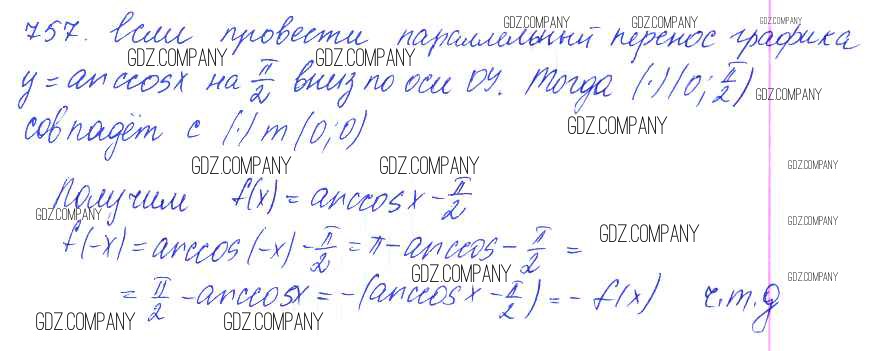 757. Если провести параллельный перенос графика
y = arccosx на π/2 вниз по оси OY. Тогда (·)(0; π/2)
совпадёт с (·) m (0; 0)
Получим f(x) = arccosx - π/2
f(-x) = arccos(-x) - π/2 = π - arccos - π/2 =
= π/2 - arccosx = -(arccosx - π/2) = - f(x) ч.т.д
GDZ.COMPANY GDZ.COMPANY GDZ.COMPANY
GDZ.COMPANY GDZ.COMPANY
GDZ.COMPANY
GDZ.COMPANY
GDZ.COMPANY GDZ.COMPANY GDZ.COMPANY
GDZ.COMPANY
GDZ.COMPANY
GDZ.COMPANY
GDZ.COMPANY GDZ.COMPANY
GDZ.COMPANY GDZ.COMPANY